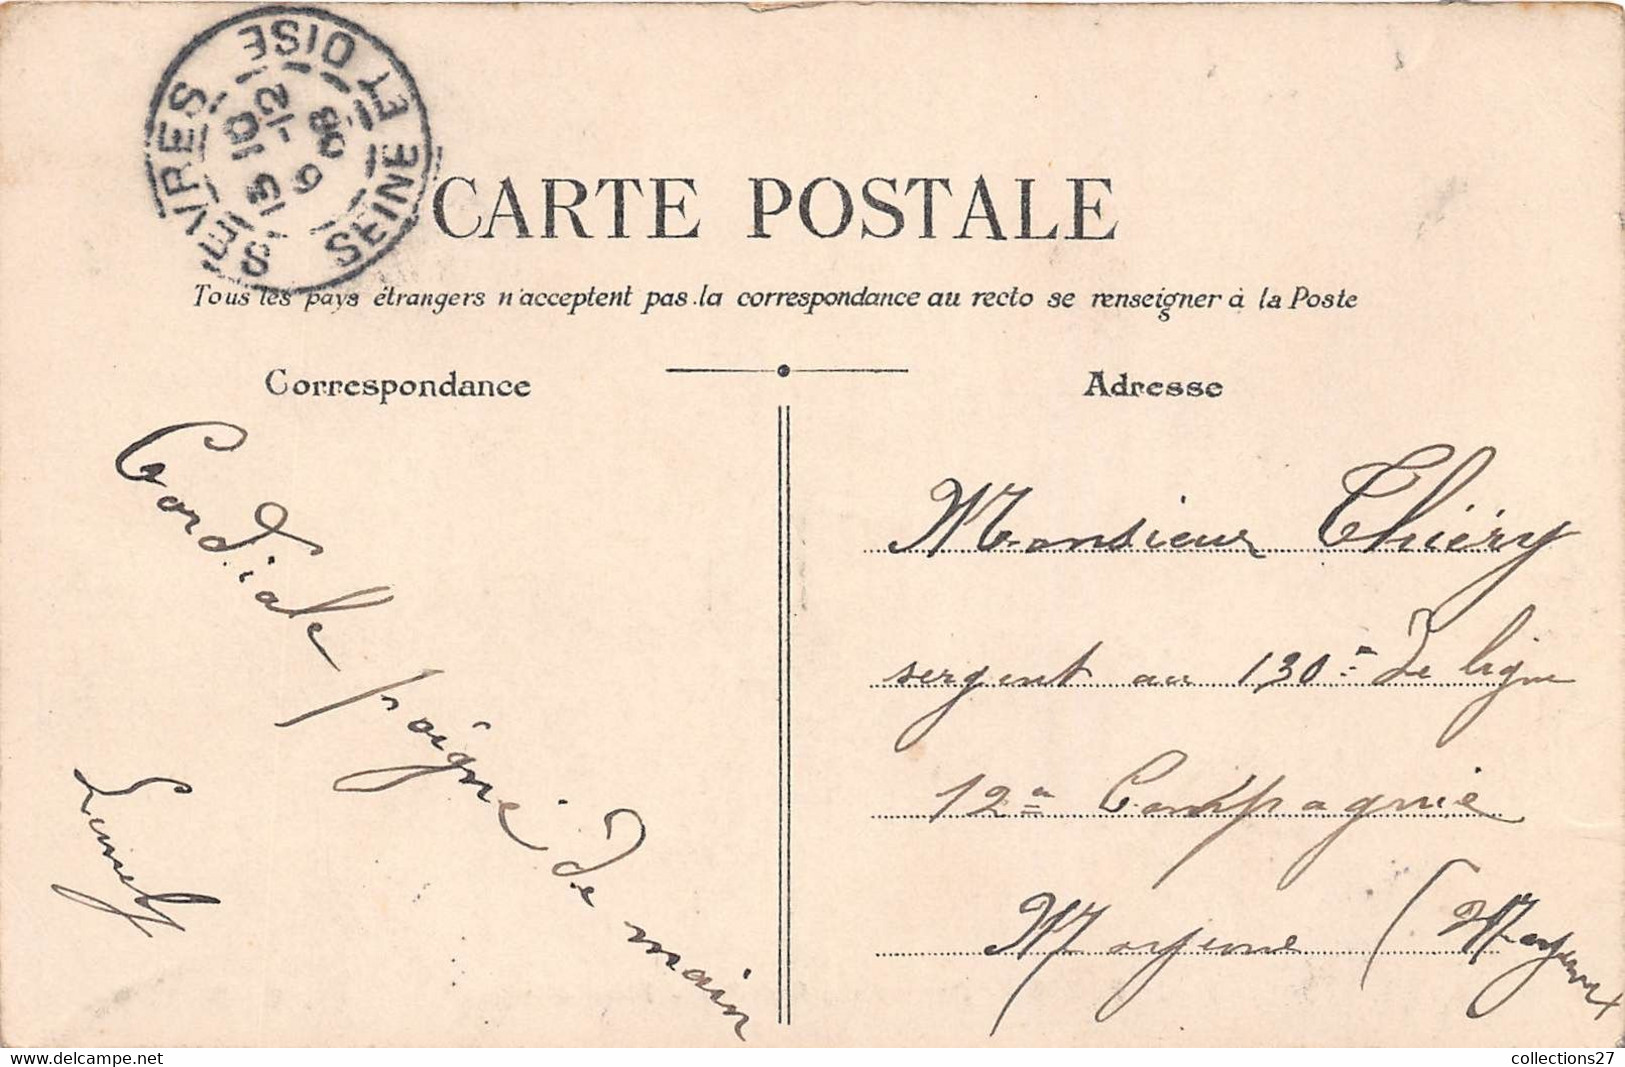 SEVRES
SEINE ET OISE
15 10
6 -12
08
CARTE POSTALE
Tous les pays étrangers n'acceptent pas la correspondance au recto se renseigner à la Poste
Correspondance
Cordiale poignée de main
Adresse
Monsieur Thiéry
sergent au 130e de ligne
12e Compagnie
Mayenne (Mayenne)
collections27